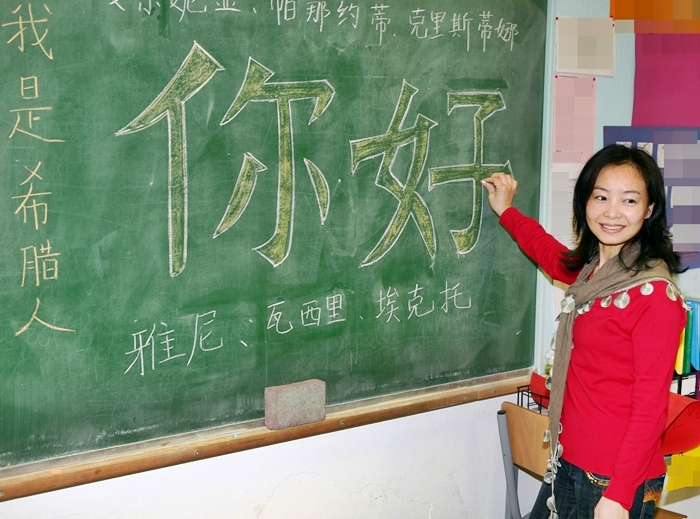 我是希腊人
帕那约蒂、克里斯蒂娜
你好
雅尼、瓦西里、埃克托